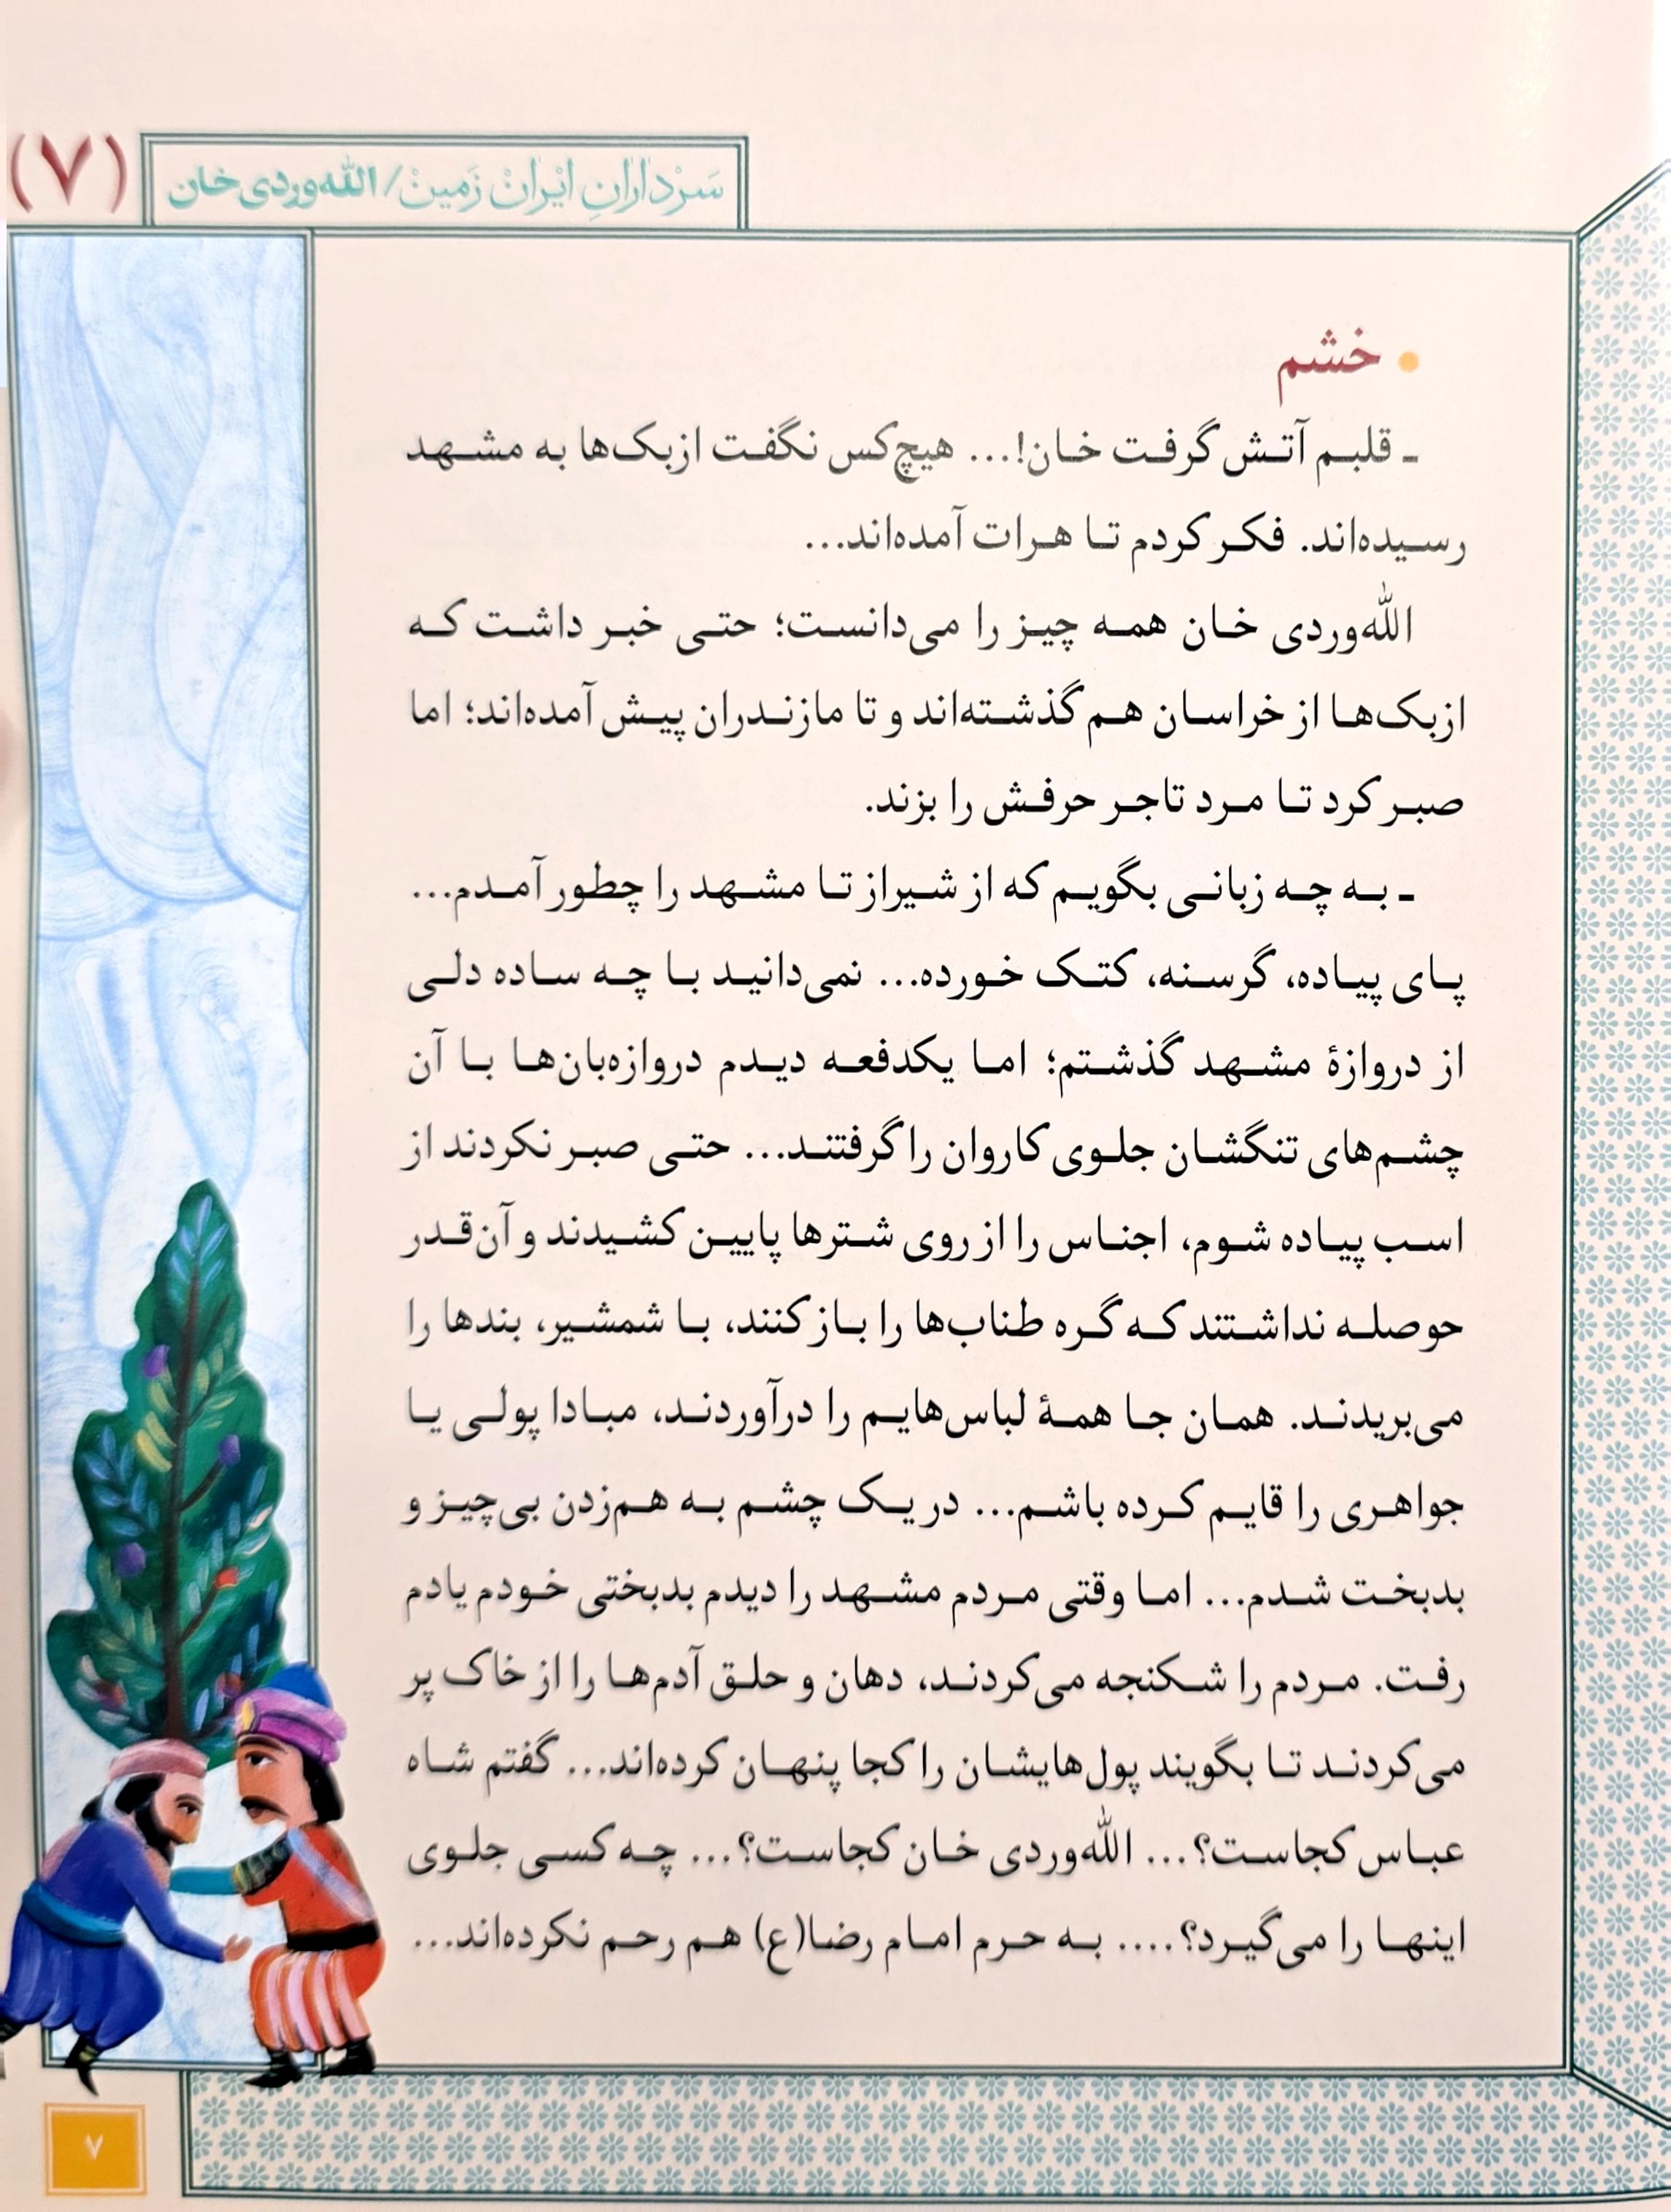 سَرْدارانِ ایْرانْ زَمینْ/ الله‌وردی خان
(۷)
• خشم
ـ قلبم آتش گرفت خان!... هیچ‌کس نگفت ازبک‌ها به مشهد
رسیده‌اند. فکر کردم تا هرات آمده‌اند...
الله‌وردی خان همه چیز را می‌دانست؛ حتی خبر داشت که
ازبک‌ها از خراسان هم گذشته‌اند و تا مازندران پیش آمده‌اند؛ اما
صبر کرد تا مرد تاجر حرفش را بزند.
ـ به چه زبانی بگویم که از شیراز تا مشهد را چطور آمدم...
پای پیاده، گرسنه، کتک خورده... نمی‌دانید با چه ساده دلی
از دروازهٔ مشهد گذشتم؛ اما یکدفعه دیدم دروازه‌بان‌ها با آن
چشم‌های تنگشان جلوی کاروان را گرفتند... حتی صبر نکردند از
اسب پیاده شوم، اجناس را از روی شترها پایین کشیدند و آن‌قدر
حوصله نداشتند که گره طناب‌ها را باز کنند، با شمشیر، بندها را
می‌بریدند. همان جا همهٔ لباس‌هایم را درآوردند، مبادا پولی یا
جواهری را قایم کرده باشم... در یک چشم به هم‌زدن بی‌چیز و
بدبخت شدم... اما وقتی مردم مشهد را دیدم بدبختی خودم یادم
رفت. مردم را شکنجه می‌کردند، دهان و حلق آدم‌ها را از خاک پر
می‌کردند تا بگویند پول‌هایشان را کجا پنهان کرده‌اند... گفتم شاه
عباس کجاست؟... الله‌وردی خان کجاست؟... چه کسی جلوی
اینها را می‌گیرد؟.... به حرم امام رضا(ع) هم رحم نکرده‌اند...
۷